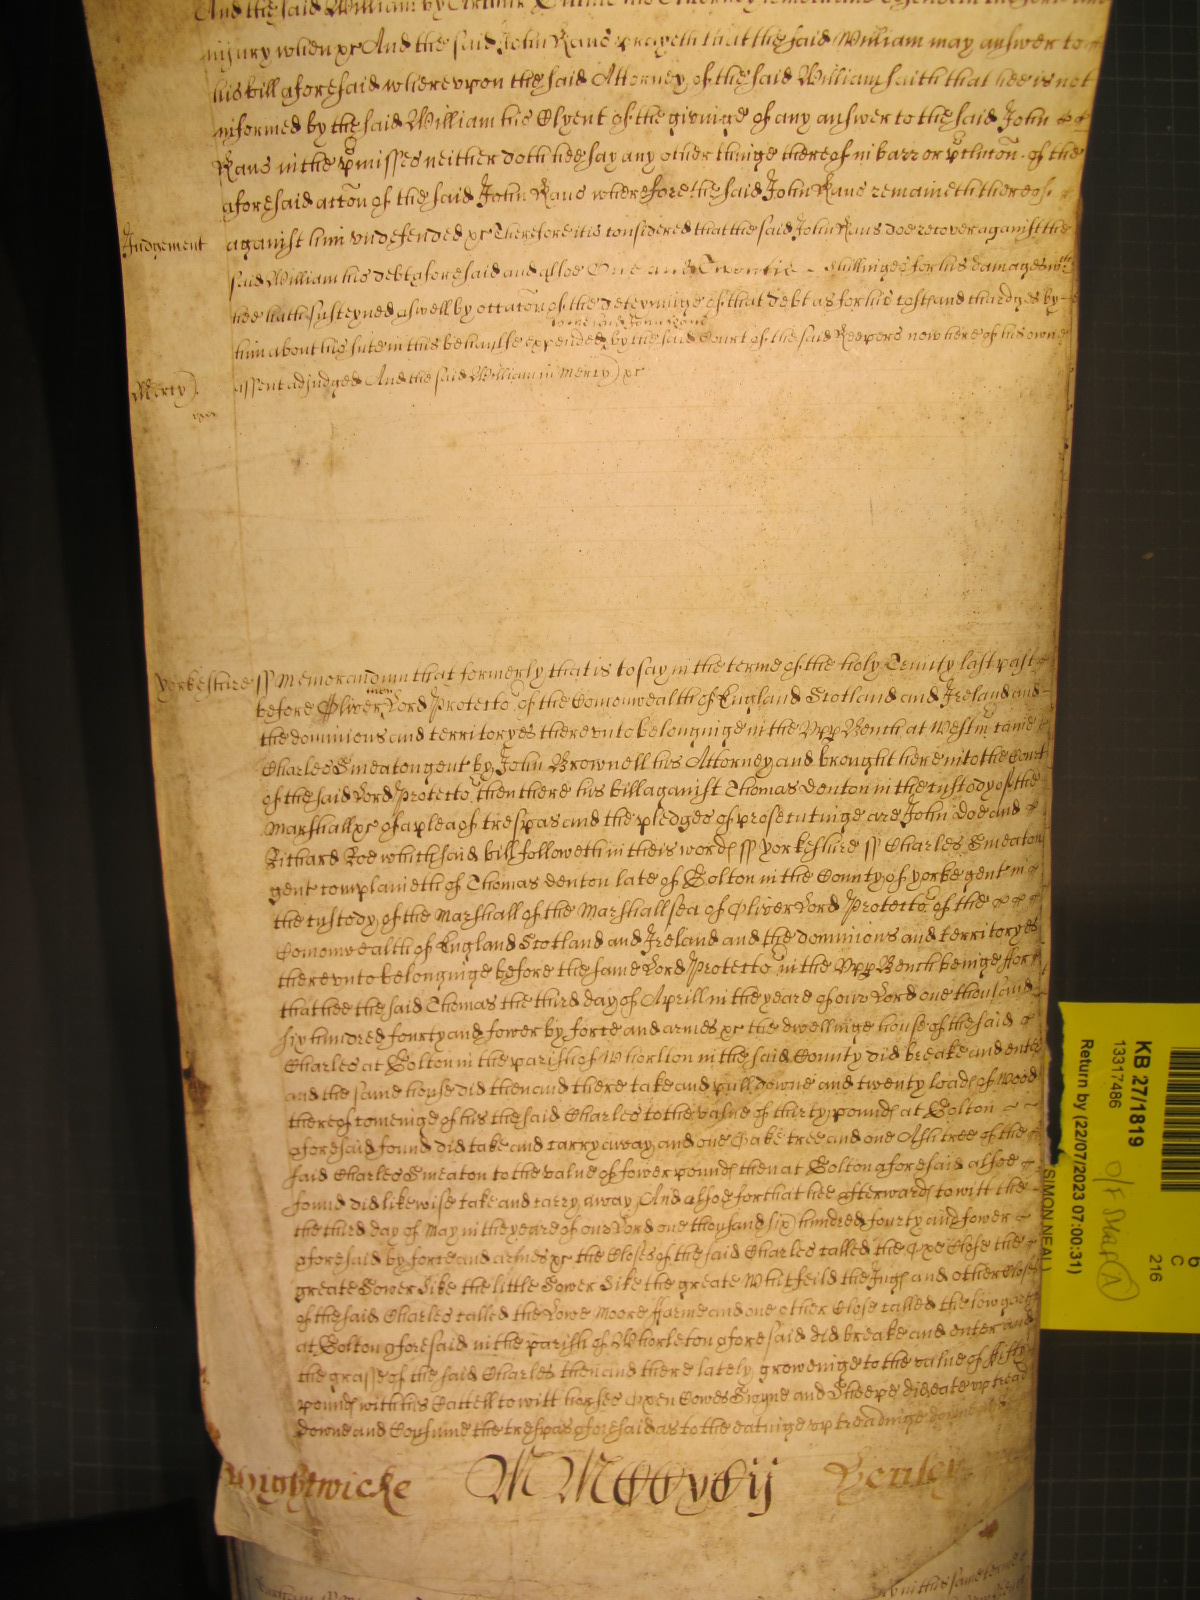 And the said William by Arthur his Attorney
injury when &c And the said John Kaus prayeth that the said William may answer to
his bill aforesaid wherevpon the said Attorney of the said William saith that hee is not
informed by the said William his Clyent of the givinge of any answer to the said John
Kaus in the pmisses neither doth hee say any other thinge thereof in barr or of the
aforesaid accon of the said John Kaus wherefore the said John Kaus remaineth thereof
Judgement against him vndefended &c Therefore it is considered that the said John Kaus doe recover against the
said William his debt aforesaid and alsoe One and Twentie shillinges for his damages wch
hee hath susteyned aswell by occacon of the deteyninge of that debt as for his costs and chardges by
to the said John Kaus
him about his sute in this behaulfe expended by the said Court of the said Keepers now here of his owne
Mercy assent adjudged And the said William in Mercy &c
Yorkeshire ss Memorandum that formerly that is to say in the terme of the holy Trinity last past
before Oliver Lord Protector of the Comonwealth of England Scotland and Ireland and
the dominions and territoryes therevnto belonginge in the Vpp Bench at Westm came
Charles Smeaton gent by John Brownell his Attorney and brought here into the Court
of the said Lord Protector then there his bill against Thomas Denton in the custody of the
Marshall &c of a plea of trespas and the pledges of prosecutinge are John Doe and
Richard Roe which said bill followeth in theis words ss Yorkeshire ss Charles Smeaton
gent complaineth of Thomas Denton late of Bolton in the County of Yorke gent in
the custody of the Marshall of the Marshallsea of Oliver Lord Protector of the
Comonwealth of England Scotland and Ireland and the dominions and territoryes
therevnto belonginge before the same Lord Protector in the Vpp Bench beinge ffor
that hee the said Thomas the third day of Aprill in the yeare of our Lord one thousand
six hundred fourty and fower by force and armes &c the dwellinge house of the said
Charles at Bolton in the parish of Whorlton in the said County did breake and enter
and the same house did then and there take and pull downe and twenty loads of Wood
thereof comeinge of his the said Charles to the value of thirty pounds at Bolton
aforesaid found did take and carry away and one Oake tree and one Ash tree of the
said Charles Smeaton to the value of fower pounds then at Bolton aforesaid alsoe
found did likewise take and carry away And alsoe for that hee afterwards to witt the
the third day of May in the yeare of our Lord one thousand six hundred fourty and fower
aforesaid by force and armes &c the Closes of the said Charles called the Oxe Close the
greate Sower Sike the little Sower Sike the greate Whitfeild the Ings and other Closes
of the said Charles called the Lowe Moore ffarme and one other Close called the low
at Bolton aforesaid in the parish of Whorleton aforesaid did breake and enter and
the grasse of the said Charles then and there lately groweinge to the value of fifty
pounds with his Cattell to witt horses Oxen Cowes Swyne and Sheepe did eate vp tread
downe and Consume the trespas aforesaid as to the eatinge vp treadinge downe
Wightwicke
Henley
KB 27/1819
13317486
Return by (22/07/2023 07:00:31)
SIMON NEAL
216
C
6